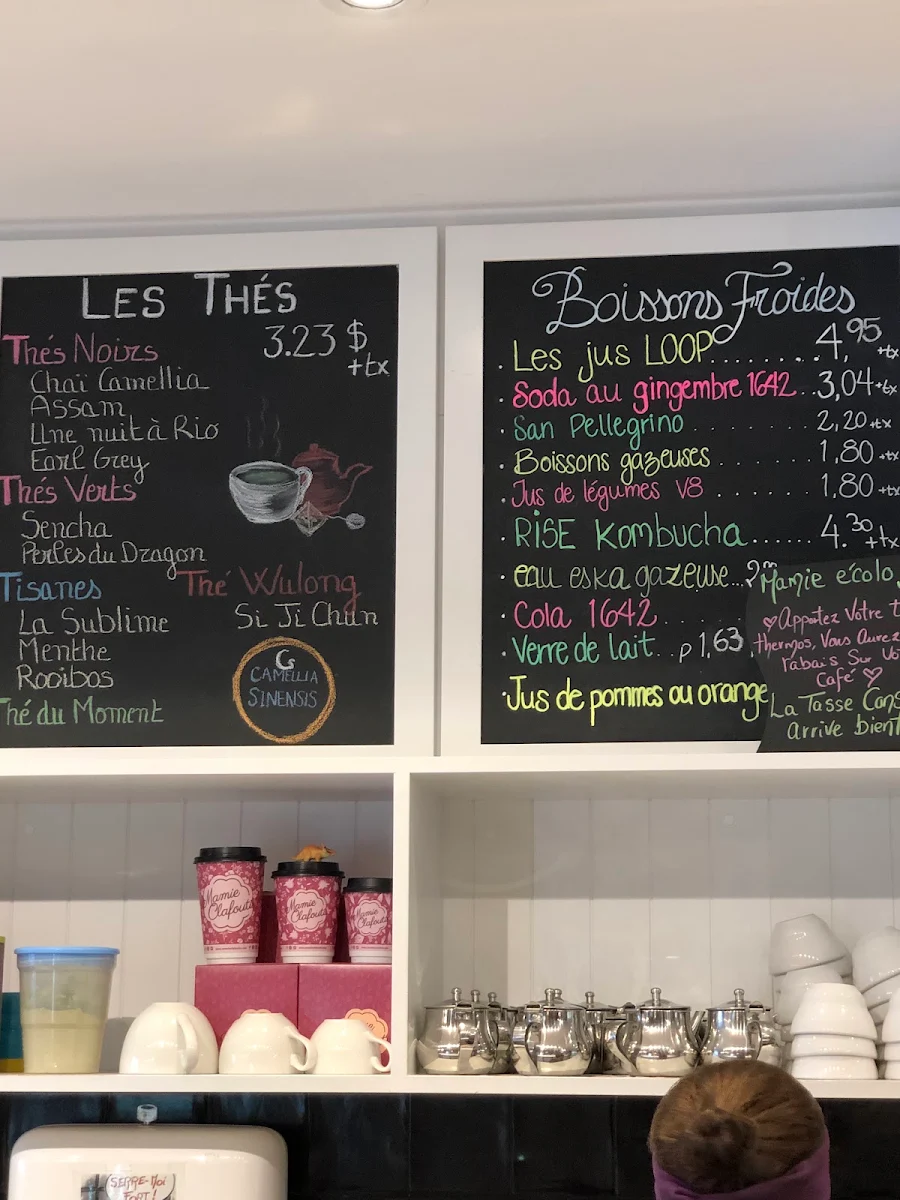 LES THÉS
3.23 $
+tx
Thés Noirs
Chaï Camellia
Assam
Une nuit à Rio
Earl Grey
Thés Verts
Sencha
Perles du Dragon
Tisanes
La Sublime
Menthe
Rooibos
Thé du Moment
Thé Wulong
Si Ji Chun
CAMELLIA
SINENSIS
Boissons Froides
. Les jus LOOP........4,95 +tx
. Soda au gingembre 1642..3,04+tx
. San Pellegrino ........ 2,20+tx
. Boissons gazeuses ....... 1,80 +tx
. Jus de légumes V8 ...... 1,80 +tx
. RISE Kombucha...... 4.30 +tx
. eau eska gazeuse...
. Cola 1642.....
. Verre de lait... p 1,63
. Jus de pommes ou orange
Mamie écolo
♡Apportez Votre
thermos, Vous Aurez
rabais Sur
Café ♡
La Tasse
Arrive
Mamie
Clafoutis
Mamie
Clafoutis
Mamie
Clafoutis
SERRE-MOI
FORT!